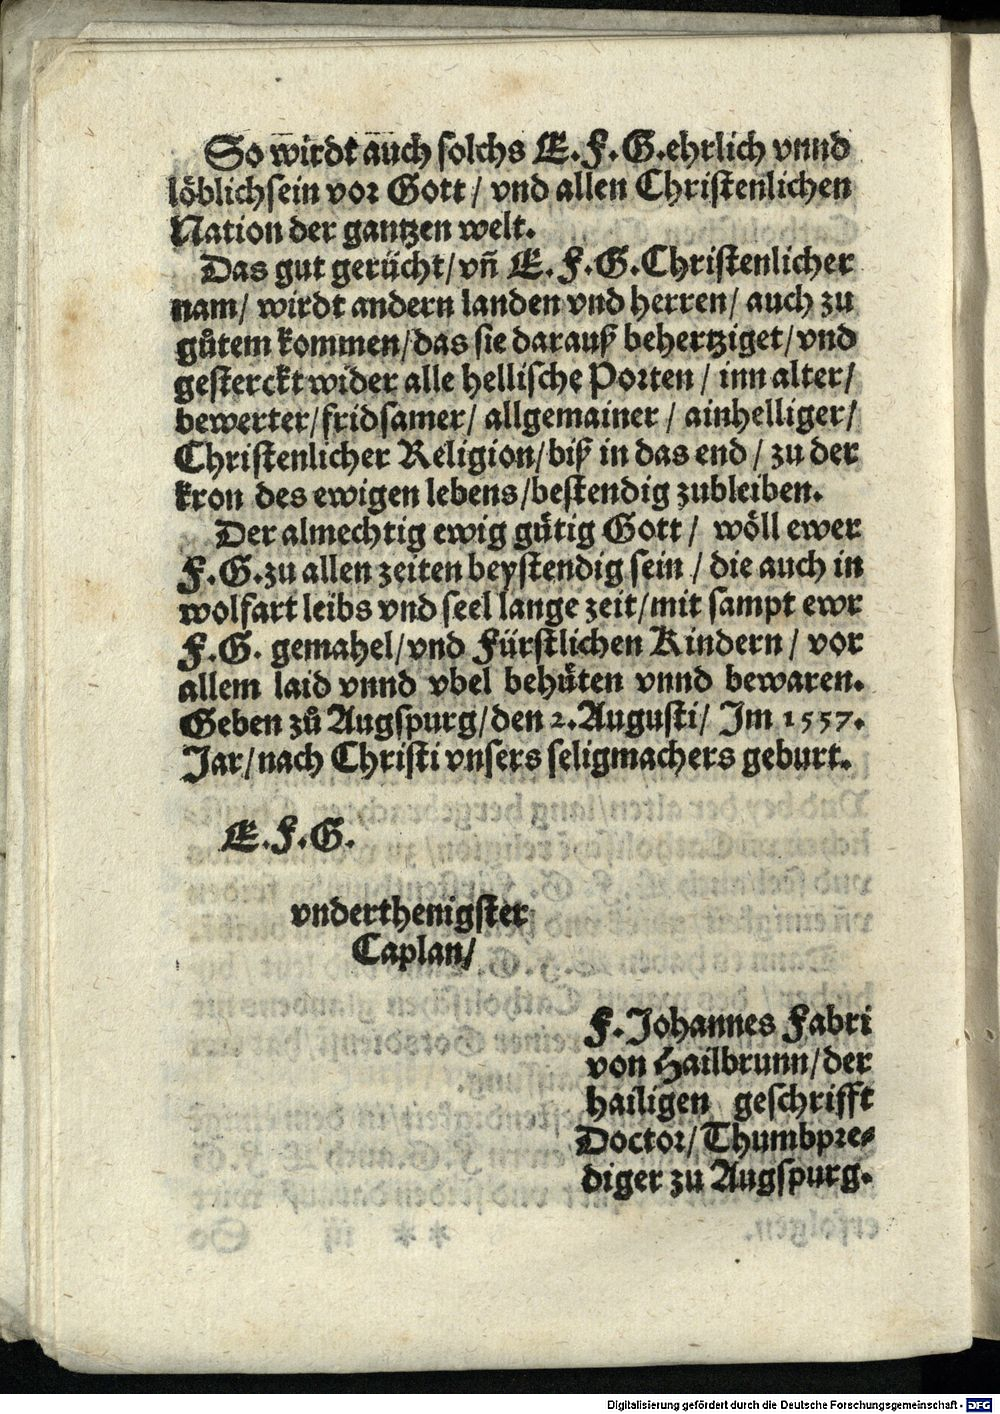 So wirdt auch solchs E. F. G. ehrlich vnnd
löblich sein vor Gott / vnd allen Christenlichen
Nation der gantzen welt.
Das gut gerücht / vñ E. F. G. Christenlicher
nam / wirdt andern landen vnd herren / auch zu
gůtem kommen / das sie darauß behertziget / vnd
gesterckt wider alle hellische Porten / inn alter /
bewerter / fridsamer / allgemainer / ainhelliger /
Christenlicher Religion / biß in das end / zu der
kron des ewigen lebens / bestendig zubleiben.
Der almechtig ewig gütig Gott / wöll ewer
F. G. zu allen zeiten beystendig sein / die auch in
wolfart leibs vnd seel lange zeit / mit sampt ewr
F. G. gemahel / vnd Fürstlichen Kindern / vor
allem laid vnnd vbel behüten vnnd bewaren.
Geben zů Augspurg / den 2. Augusti / Im 1557.
Jar / nach Christi vnsers seligmachers geburt.
E. F. G.
vnderthenigster
Caplan /
F. Johannes Fabri
von Hailbrunn / der
hailigen geschrifft
Doctor / Thumbpre⸗
diger zu Augspurg.
Digitalisierung gefördert durch die Deutsche Forschungsgemeinschaft - DFG